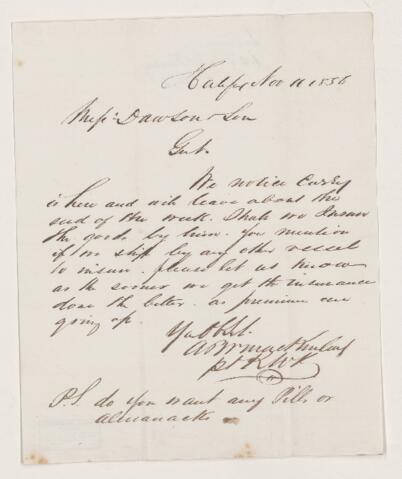 Halifax Nov 11 1856
Messrs Dawson & Son
Gent.
We notice
is here and will leave about the
end of the week. Shall we Insure
the goods by him. You mention
if we ship by any other vessel
to insure. please let us know
as the sooner we get the insurance
done the better. as premiums are
going up.
Yr Obt St.
P.S. do you want any Pills or
almanacks